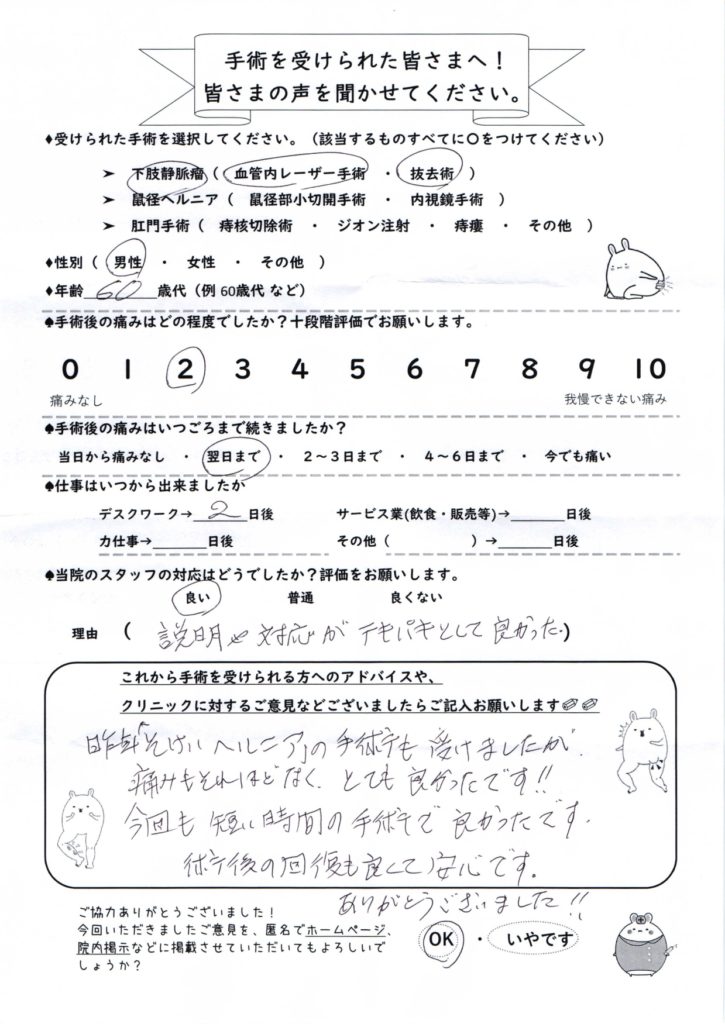 手術を受けられた皆さまへ！
皆さまの声を聞かせてください。
♦受けられた手術を選択してください。（該当するものすべてに〇をつけてください）
➤ 下肢静脈瘤（ 血管内レーザー手術 ・ 抜去術 ）
➤ 鼠径ヘルニア（ 鼠径部小切開手術 ・ 内視鏡手術 ）
➤ 肛門手術（ 痔核切除術 ・ ジオン注射 ・ 痔瘻 ・ その他 ）
♦性別（ 男性 ・ 女性 ・ その他 ）
♦年齢 60 歳代（例 60歳代 など）
♠手術後の痛みはどの程度でしたか？十段階評価でお願いします。
0 1 2 3 4 5 6 7 8 9 10
痛みなし 我慢できない痛み
♠手術後の痛みはいつごろまで続きましたか？
当日から痛みなし ・ 翌日まで ・ 2～3日まで ・ 4～6日まで ・ 今でも痛い
♠仕事はいつから出来ましたか
デスクワーク→ 2 日後 サービス業(飲食・販売等)→ 日後
力仕事→ 日後 その他（ ）→ 日後
♠当院のスタッフの対応はどうでしたか？評価をお願いします。
良い 普通 良くない
理由 （ 説明や対応がテキパキとして良かった.）
これから手術を受けられる方へのアドバイスや、
クリニックに対するご意見などございましたらご記入お願いします
昨年「そけいヘルニア」の手術も受けましたが.
痛みもそれほどなく. とても良かったです!!
今回も短い時間の手術で良かったです.
術後の回復も良くて安心です.
ありがとうございました!!
ご協力ありがとうございました！
今回いただきましたご意見を、匿名でホームページ、
院内掲示などに掲載させていただいてもよろしいで
しょうか？
OK ・ いやです